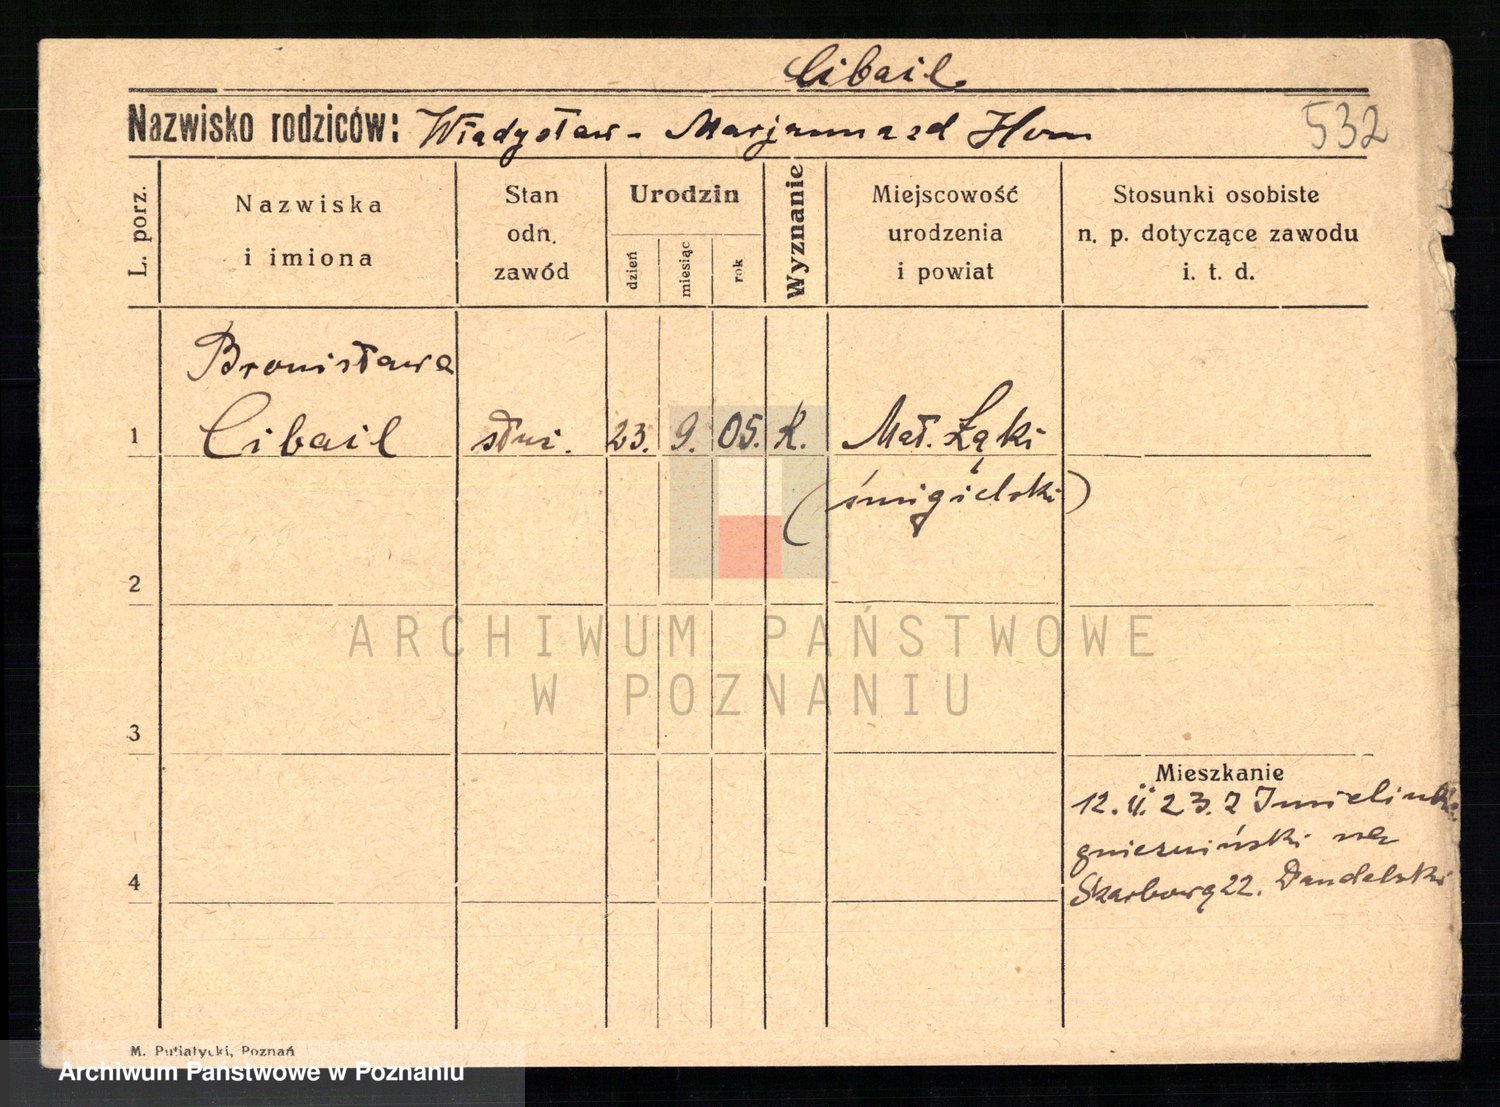 Cibail
Nazwisko rodziców: Władysław - Marjanna zd Horn
532
L. porz.
Nazwiska
i imiona
Stan
odn.
zawód
Urodzin
dzień
miesiąc
rok
Wyznanie
Miejscowość
urodzenia
i powiat
Stosunki osobiste
n. p. dotyczące zawodu
i. t. d.
Bronisława
1 Cibail służ. 23. 9. 05. K. Mał. Łąki
(śmigielski)
2
ARCHIWUM PAŃSTWOWE
W POZNANIU
3
Mieszkanie
12. 4. 23. Z Imielinka
gnieźniński na
4
Skarbową 22. Dandelski
M. Putiatycki, Poznań
Archiwum Państwowe w Poznaniu